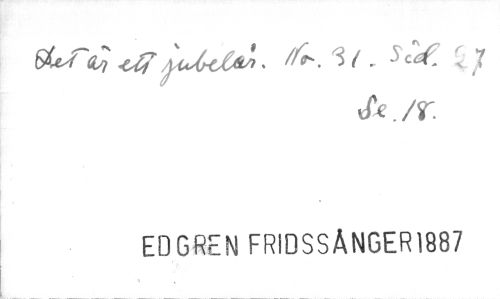 Det är ett jubelår. No. 31. Sid. 27
Se. 18.
EDGREN FRIDSSÅNGER 1887